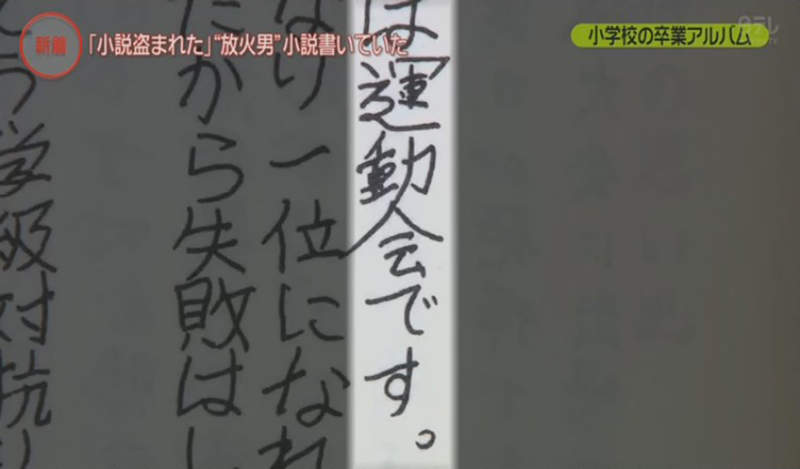 新着
「小説盗まれた」“放火男”小説書いていた
小学校の卒業アルバム
日テレ
は運動会です。
なり一位になれ
たから失敗はし
う学級対抗リ